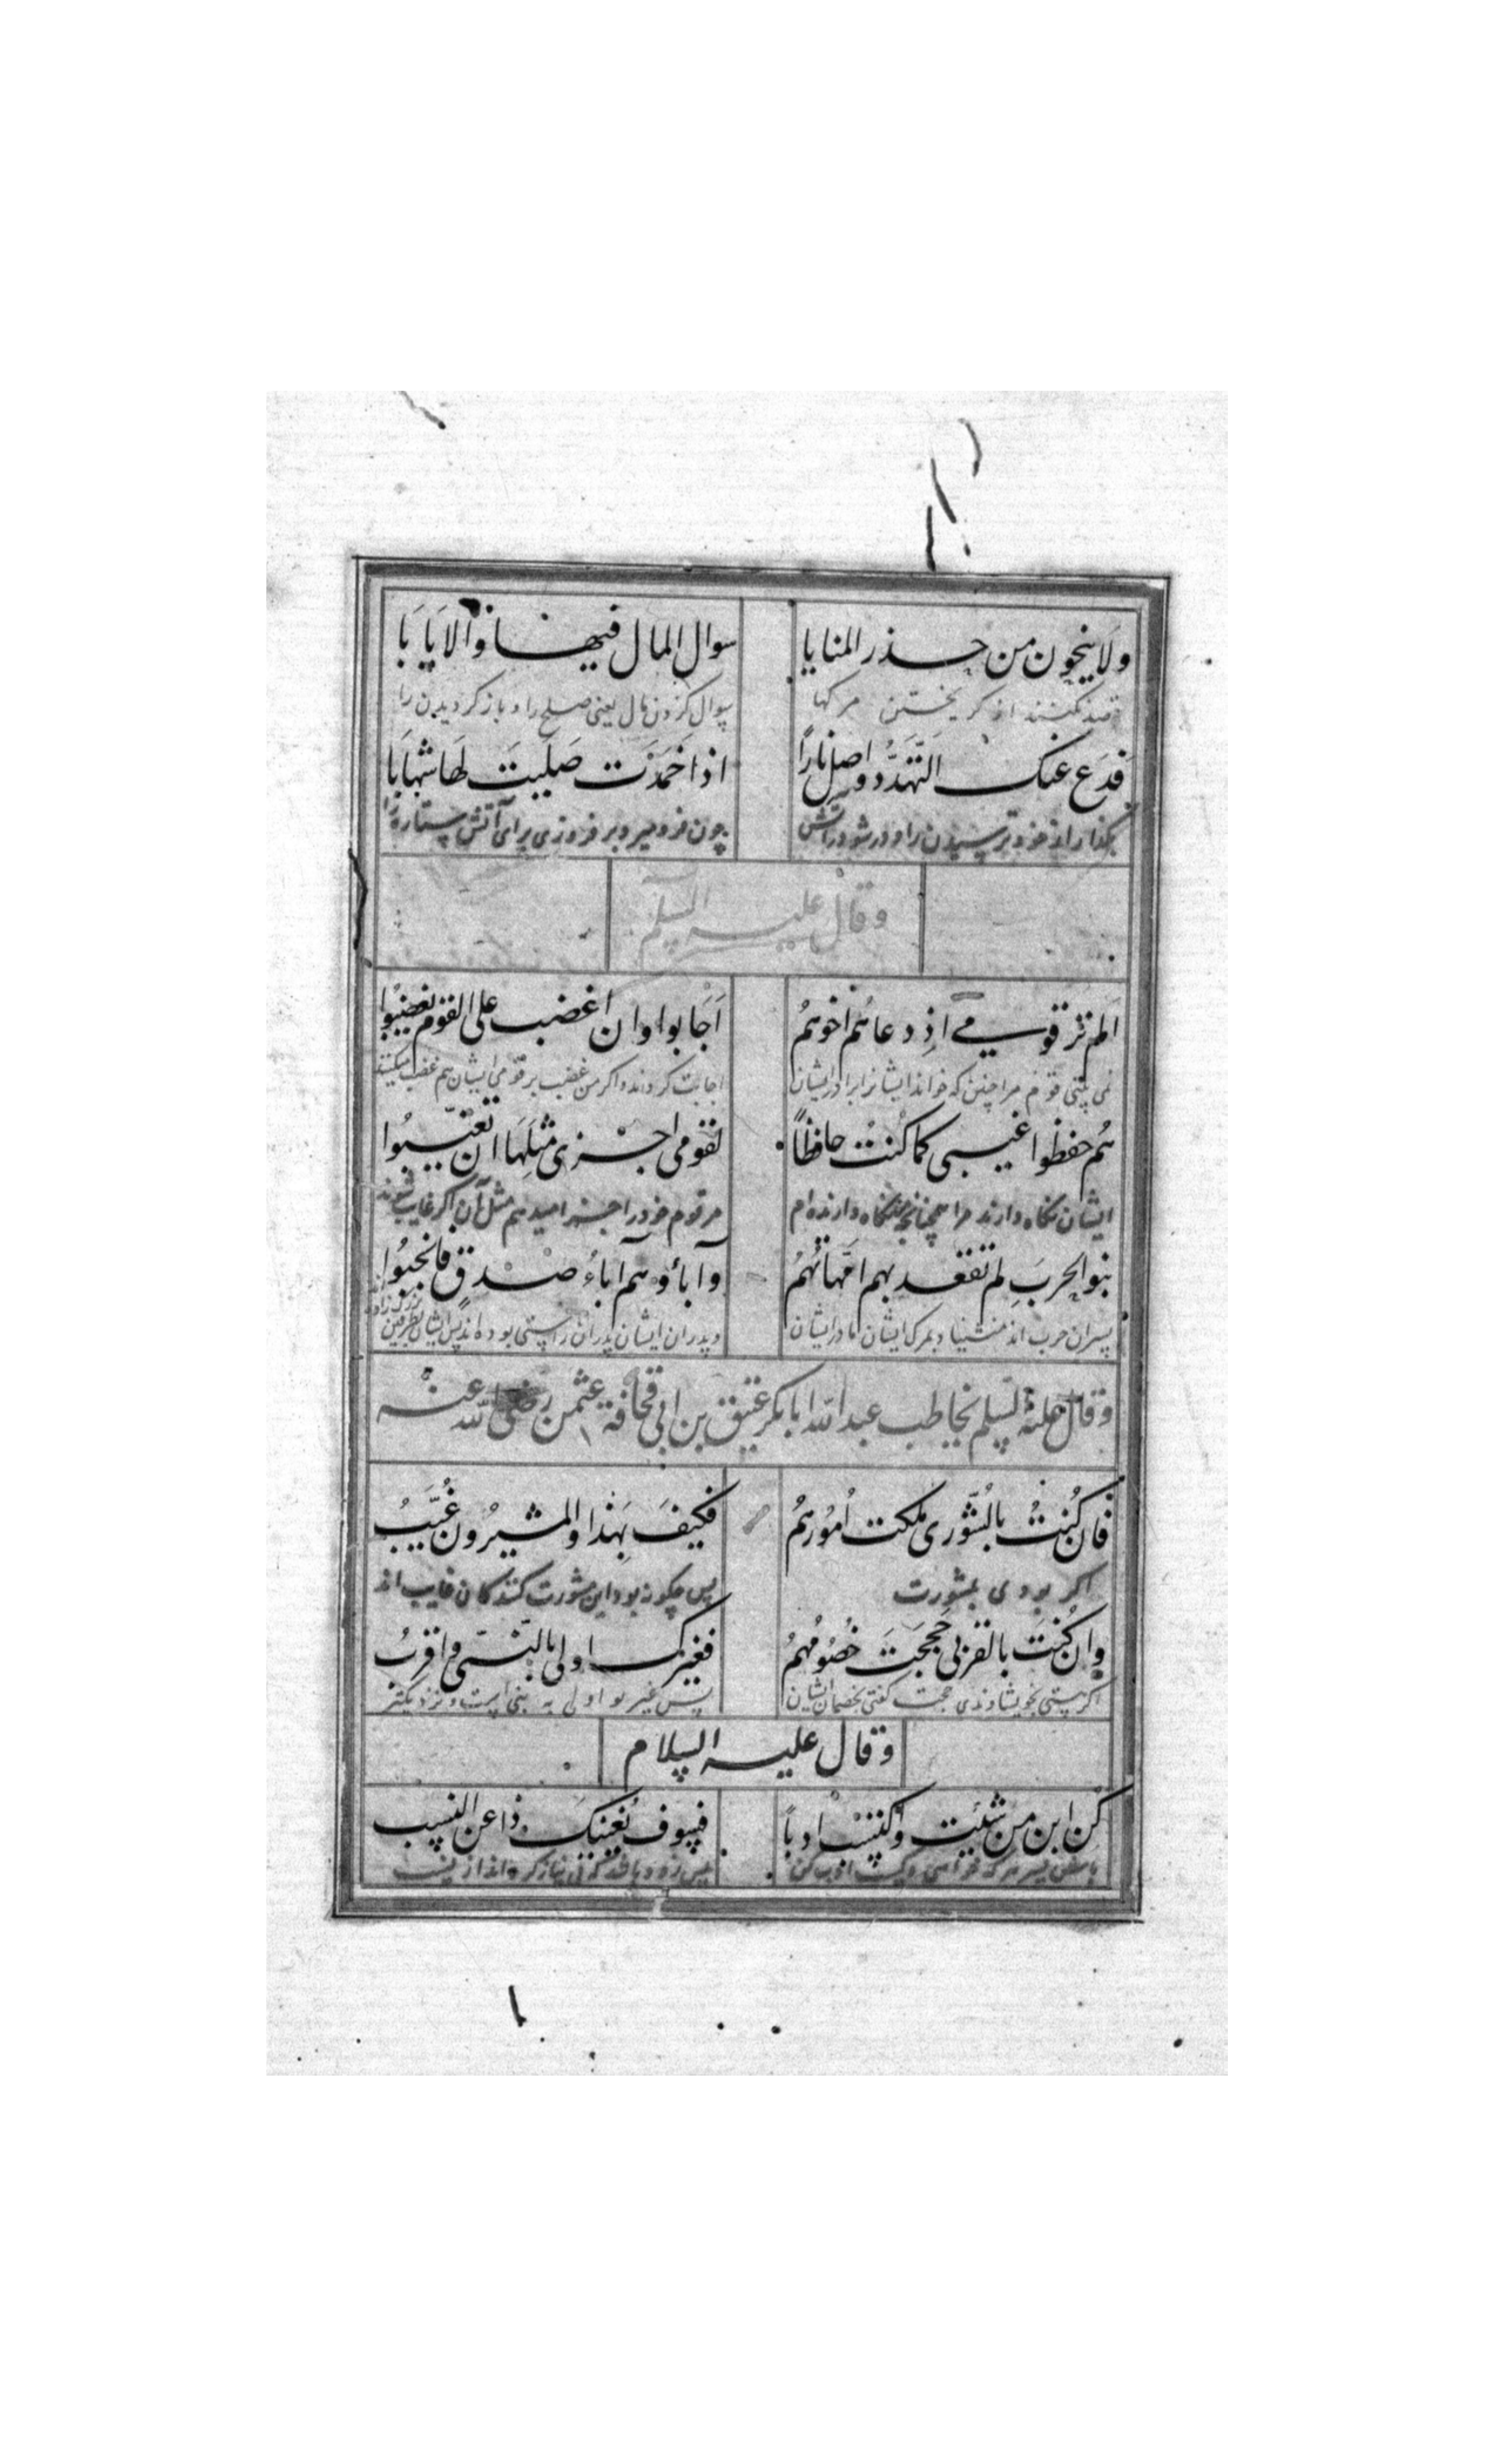 ولا ینحون من حذر المنایا سوال المال فیها والایابا
قصد نکنند از کریختن مرکها سوال کردن مال یعنی صلح را و باز کردیدن را
فدع عنک التهدد و اصل نارا اذا خمدت صلیت لها شهابا
بکذار از خود ترسیدن را و در شو در آتش چون فرو میرد بر فروزی برای آتش ستاره را
و قال علیه السلم
الم تر قومی اذ دعاهم اخوهم اجابوا وان اغضب علی القوم یغضبوا
نمی بینی قوم مرا چنین که خواند ایشانرا برادر ایشان اجابت کردند و اکر من غضب بر قومی ایشان هم غضب میکنند
هم حفظوا غیبی کما کنت حافظا لقومی اجزی مثلها ان تغیبوا
ایشان نکاه دارند مرا همچنانچه نکاه دارنده ام مر قوم خود را جزا میدهم مثل آن اکر غایب شوند
بنو الحرب لم تقعد بهم امهاتهم و آباؤهم اباء صدق فانجبوا
پسران حرب اند ایشان مادر ایشان و پدران ایشان پدران راستی بوده اند پس ایشان بطرفین بزرک زاده
و قال علیه السلم یخاطب عبد الله ابا بکر عتیق بن ابی قحافة عثمن رضی الله عنه
فان کنت بالشوری ملکت امورهم فکیف بهذا والمشیرون غیب
اکر بودی بمشورت پس چکونه بود این مشورت کنندکان غایب اند
وان کنت بالقربی حججت خصومهم فغیرک اولی بالنبی و اقرب
اکر هستی بخویشاوندی حجت کفتی بخصمان ایشان پس غیر تو اولی به نبی است و نزدیکتر
و قال علیه السلام
کن ابن من شئت و کتسب ادبا فسوف یغنیک ذا عن النسب
باش پسر هر که خواهی و کسب ادب کن پس زود باشد که بی نیاز کرداند از نسب